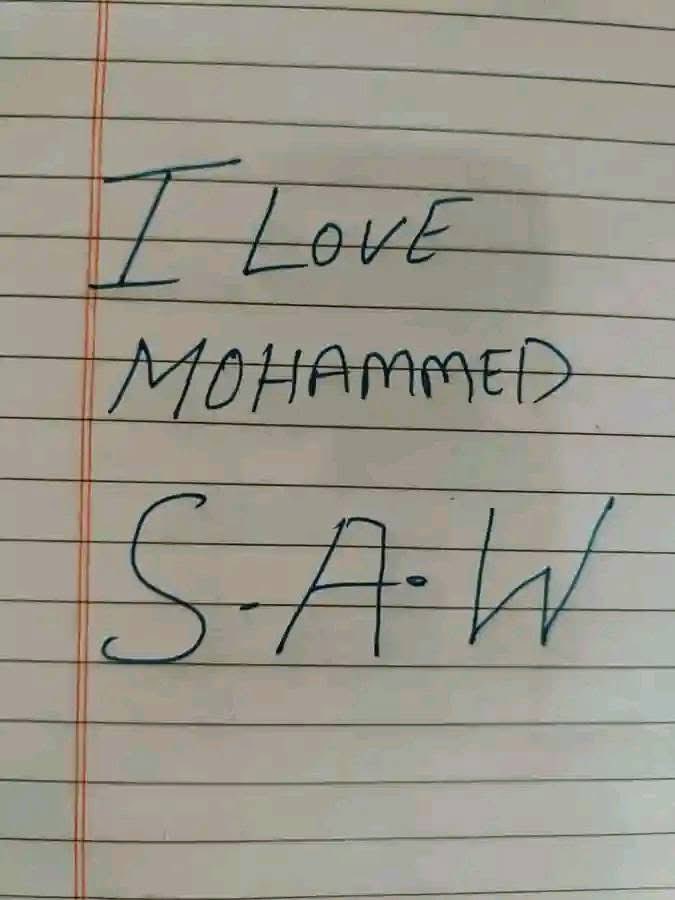 I LOVE
MOHAMMED
S.A.W